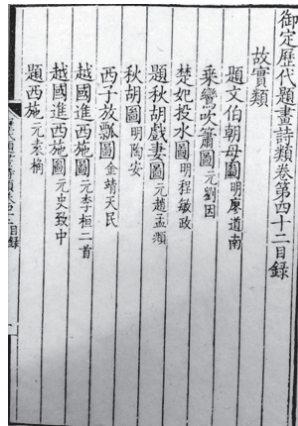 御定歷代題畫詩類卷第四十二目錄
故實類
題文伯朝母圖明廖道南
乘鸞吹簫圖元劉因
楚妃投水圖明程敏政
題秋胡戲妻圖元趙孟頫
秋胡圖明陶安
西子放瓢圖金靖天民
越國進西施圖元李桓二首
越國進西施圖元史致中
題西施元袁桷